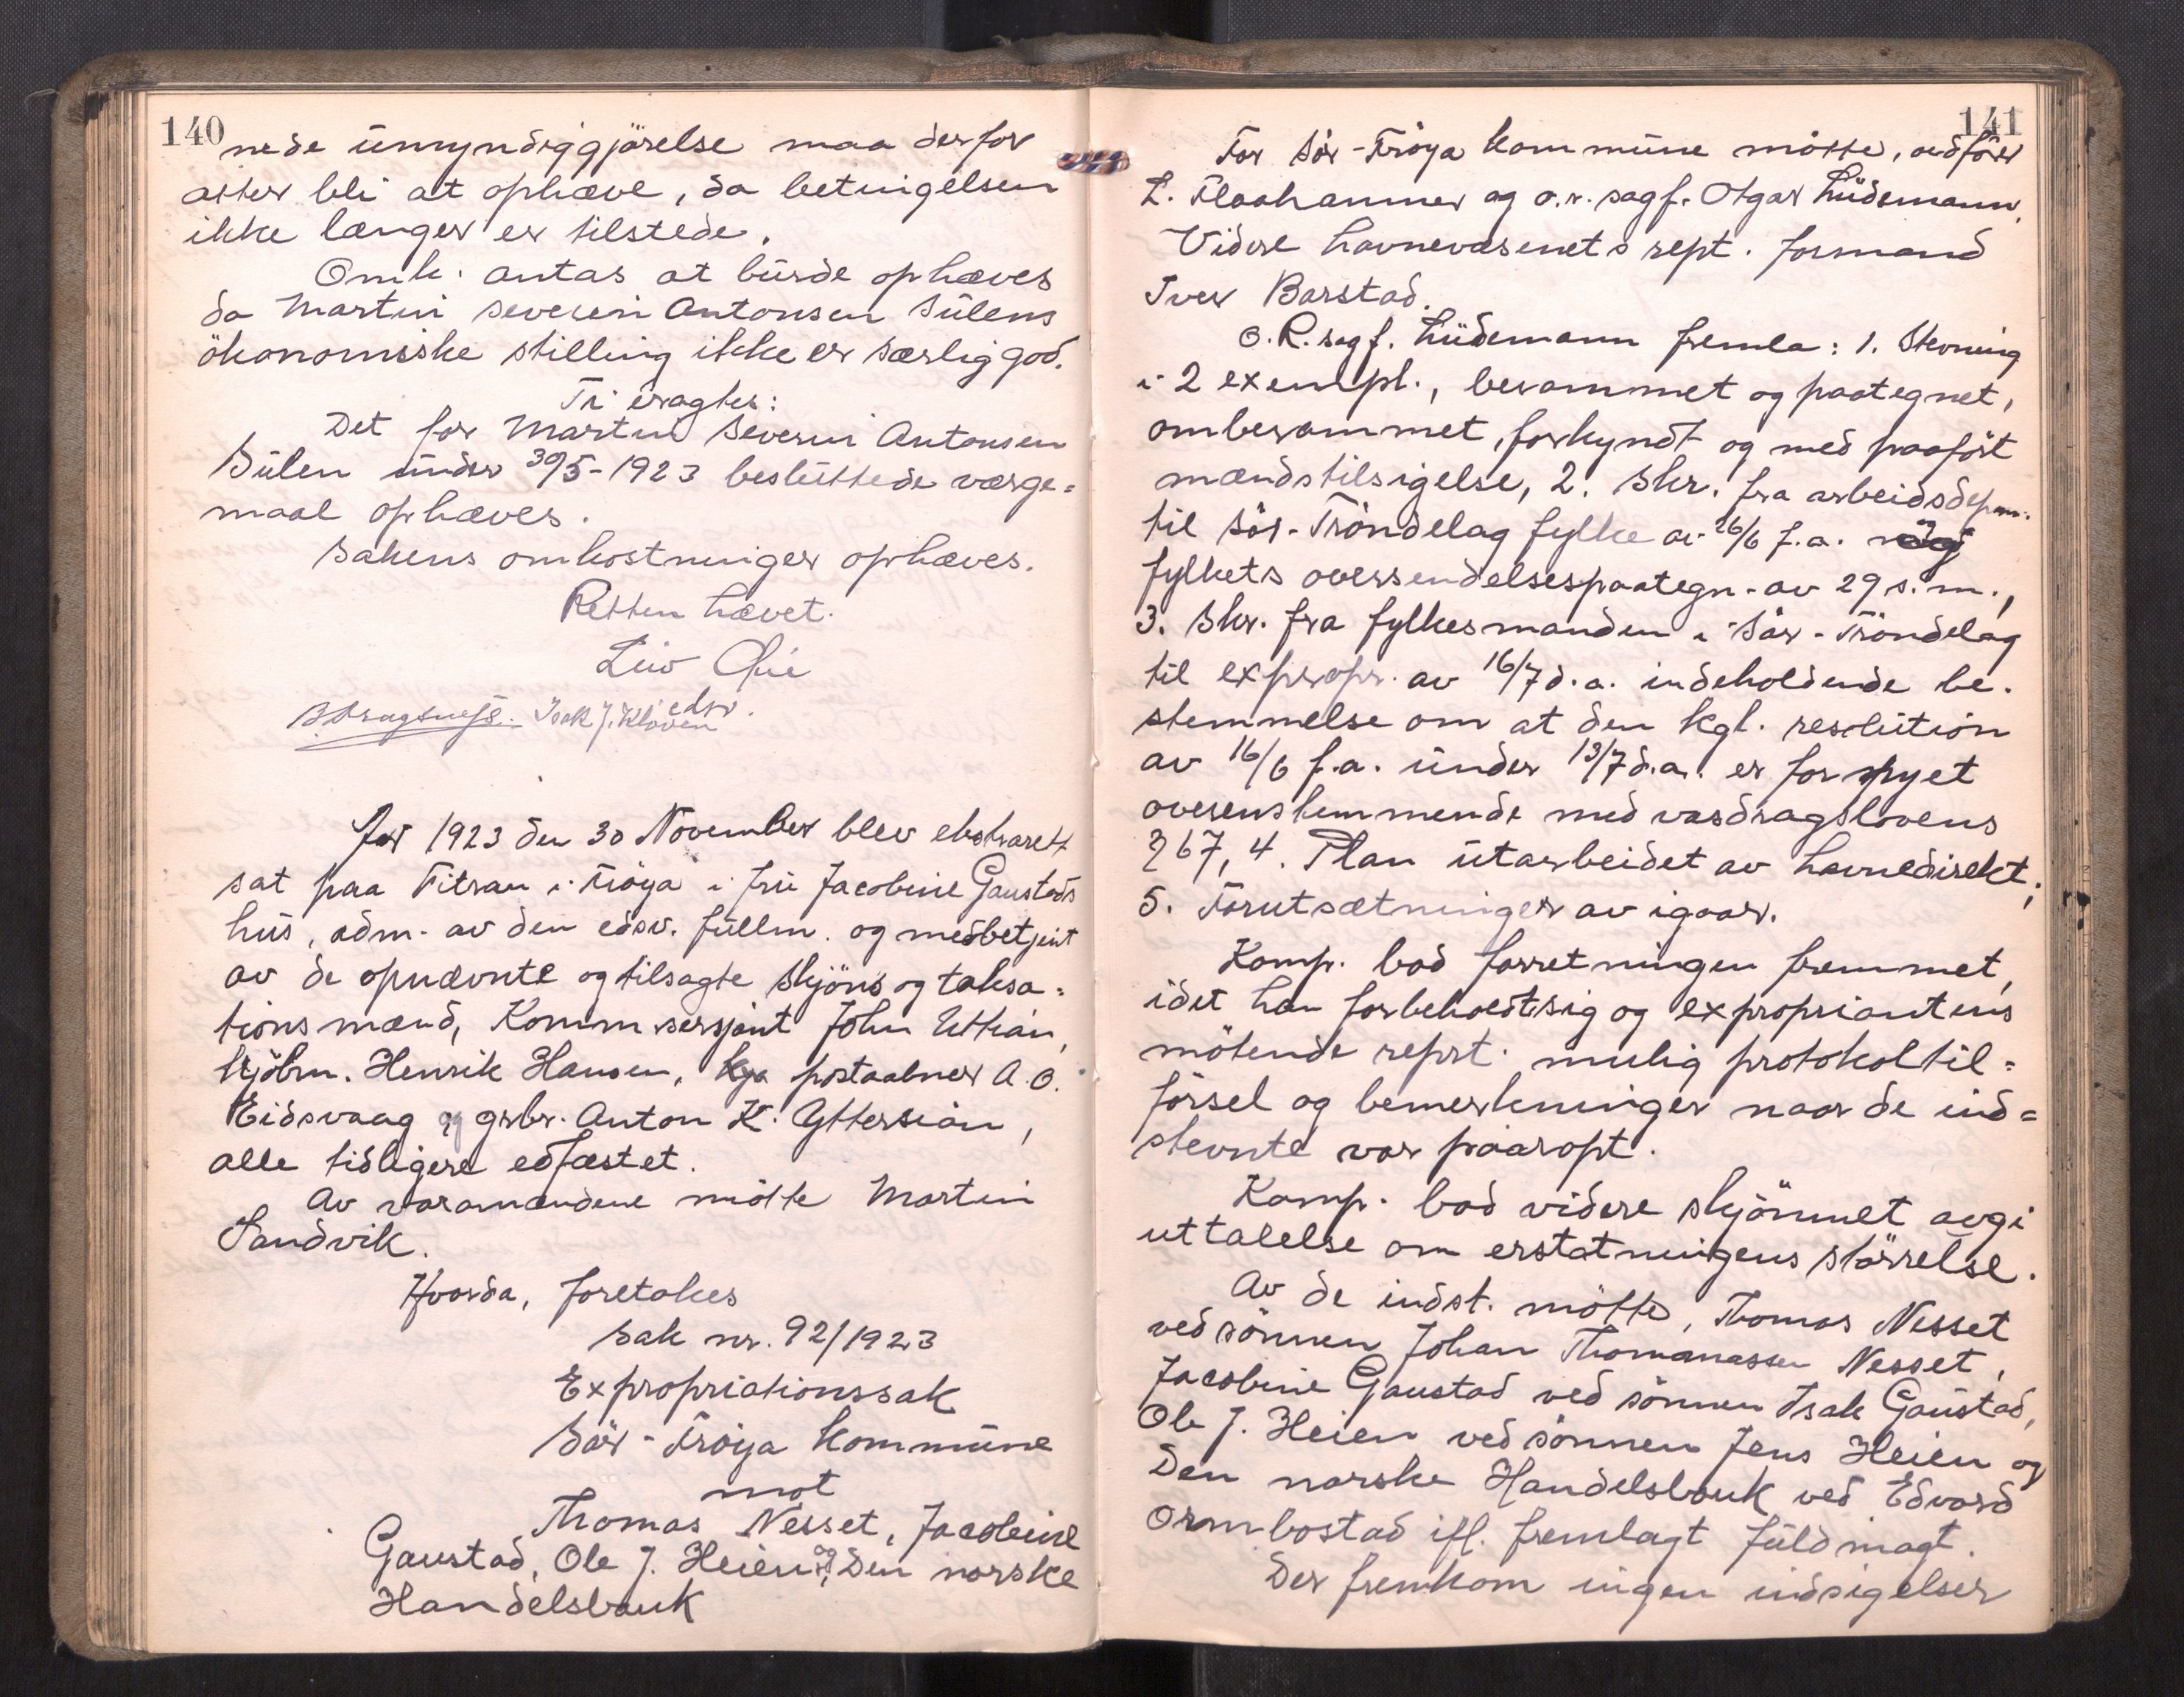 140
nede umyndiggjörelse maa derfor
atter bli at ophæve, da betingelsen
ikke længer er tilstede.
Omk. antas at burde ophæves
da Martin Severin Antonsen Sulens
ökonomiske stilling ikke er særlig god.
Ti eragtes:
Det for Martin Severin Antonsen
Sulen under 30/5-1923 besluttede værge=
maal ophæves.
Sakens omkostninger ophæves.
Retten hævet.
Isak J. Kloven
edsv.
Aar 1923 den 30 November blev ekstrarett
sat paa Titran i Fröya i fru Jacobine Gaustads
hus, adm. av den edsv. fullm. og medbetjent
av de opnævnte og tilsagte skjöns og taksa=
tionsmænd, Komm.
kjöbm. Henrik Hansen, postaabner A. O.
Eidsvaag og grbr. Anton K. Yttersian,
alle tidligere edfæstet.
Av varamændene mötte Martin
Sandvik.
Hvorda, foretokes
Sak nr. 92/1923
Expropriationssak
Sör-Fröya kommune
mot
Thomas Nesset, Jacobine
Gaustad, Ole J. Heien og Den norske
Handelsbank
141
For Sör-Fröya kommune mötte, ordförer
L. Flaahammer og o.r.sagf. Otgar Lüdemann.
Videre havnevæsenets rept. formand
Iver Barstad.
O.R.sagf. Lüdemann fremla: 1. Stevning
i 2 exempl., berammet og paategnet,
omberammet, forkyndt og med paafört
mændstilsigelse, 2. Skr. fra arbeidsdepm.
til Sör-Tröndelag fylke av 26/6 f.a. m
fylkets oversendelsespaategn. av 29 s.m.,
3. Skr. fra fylkesmanden i Sör-Tröndelag
til expropr. av 16/7 d.a. indeholdende be-
stemmelse om at den kgl. resolution
av 16/6 f.a. under 13/7 d.a. er fornyet
overenstemmende med vasdragslovens
§ 67, 4. Plan utarbeidet av havnedirekt;
5. Forutsætninger av igaar.
Komp. bad forretningen fremmet,
idet han forbeholdt sig og expropriantens
mötende reprt. mulig protokoltil=
försel og bemerkninger naar de ind=
stevnte var paaropt.
Komp. bad videre skjönnet avgi
uttalelse om erstatningens störrelse.
Av de indst. mötte, Thomas Nesset
ved sönnen Johan Thomanassen Nesset,
Jacobine Gaustad ved sönnen Isak Gaustad,
Ole J. Heien ved sönnen Jens Heien og
Den norske Handelsbank ved Edvard
Ormbostad ifl. fremlagt fuldmagt.
Der fremkom ingen indsigelser